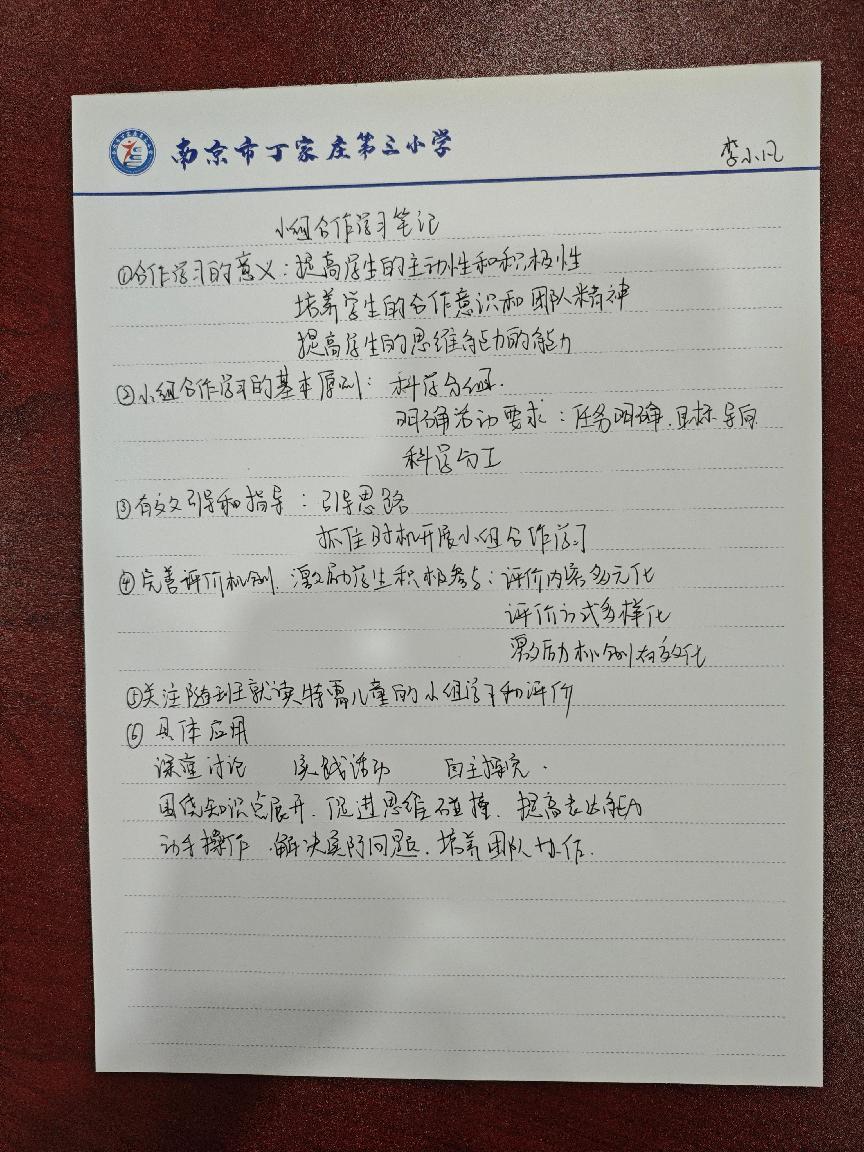 南京市丁家庄第三小学
李小凡
小组合作学习笔记
①合作学习的意义：提高学生的主动性和积极性
培养学生的合作意识和团队精神
提高学生的思维能力的能力
②小组合作学习的基本原则：科学分组.
明确活动要求：任务明确.目标导向
科学分工
③有效引导和指导：引导思路
抓住时机开展小组合作学习
④完善评价机制，激励学生积极参与：评价内容多元化
评价方式多样化
激励机制有效化
⑤关注随班就读特需儿童的小组学习和评价
⑥ 具体应用
深度讨论 实践活动 自主探究.
围绕知识点展开.促进思维碰撞.提高表达能力
动手操作 .解决实际问题.培养团队协作.